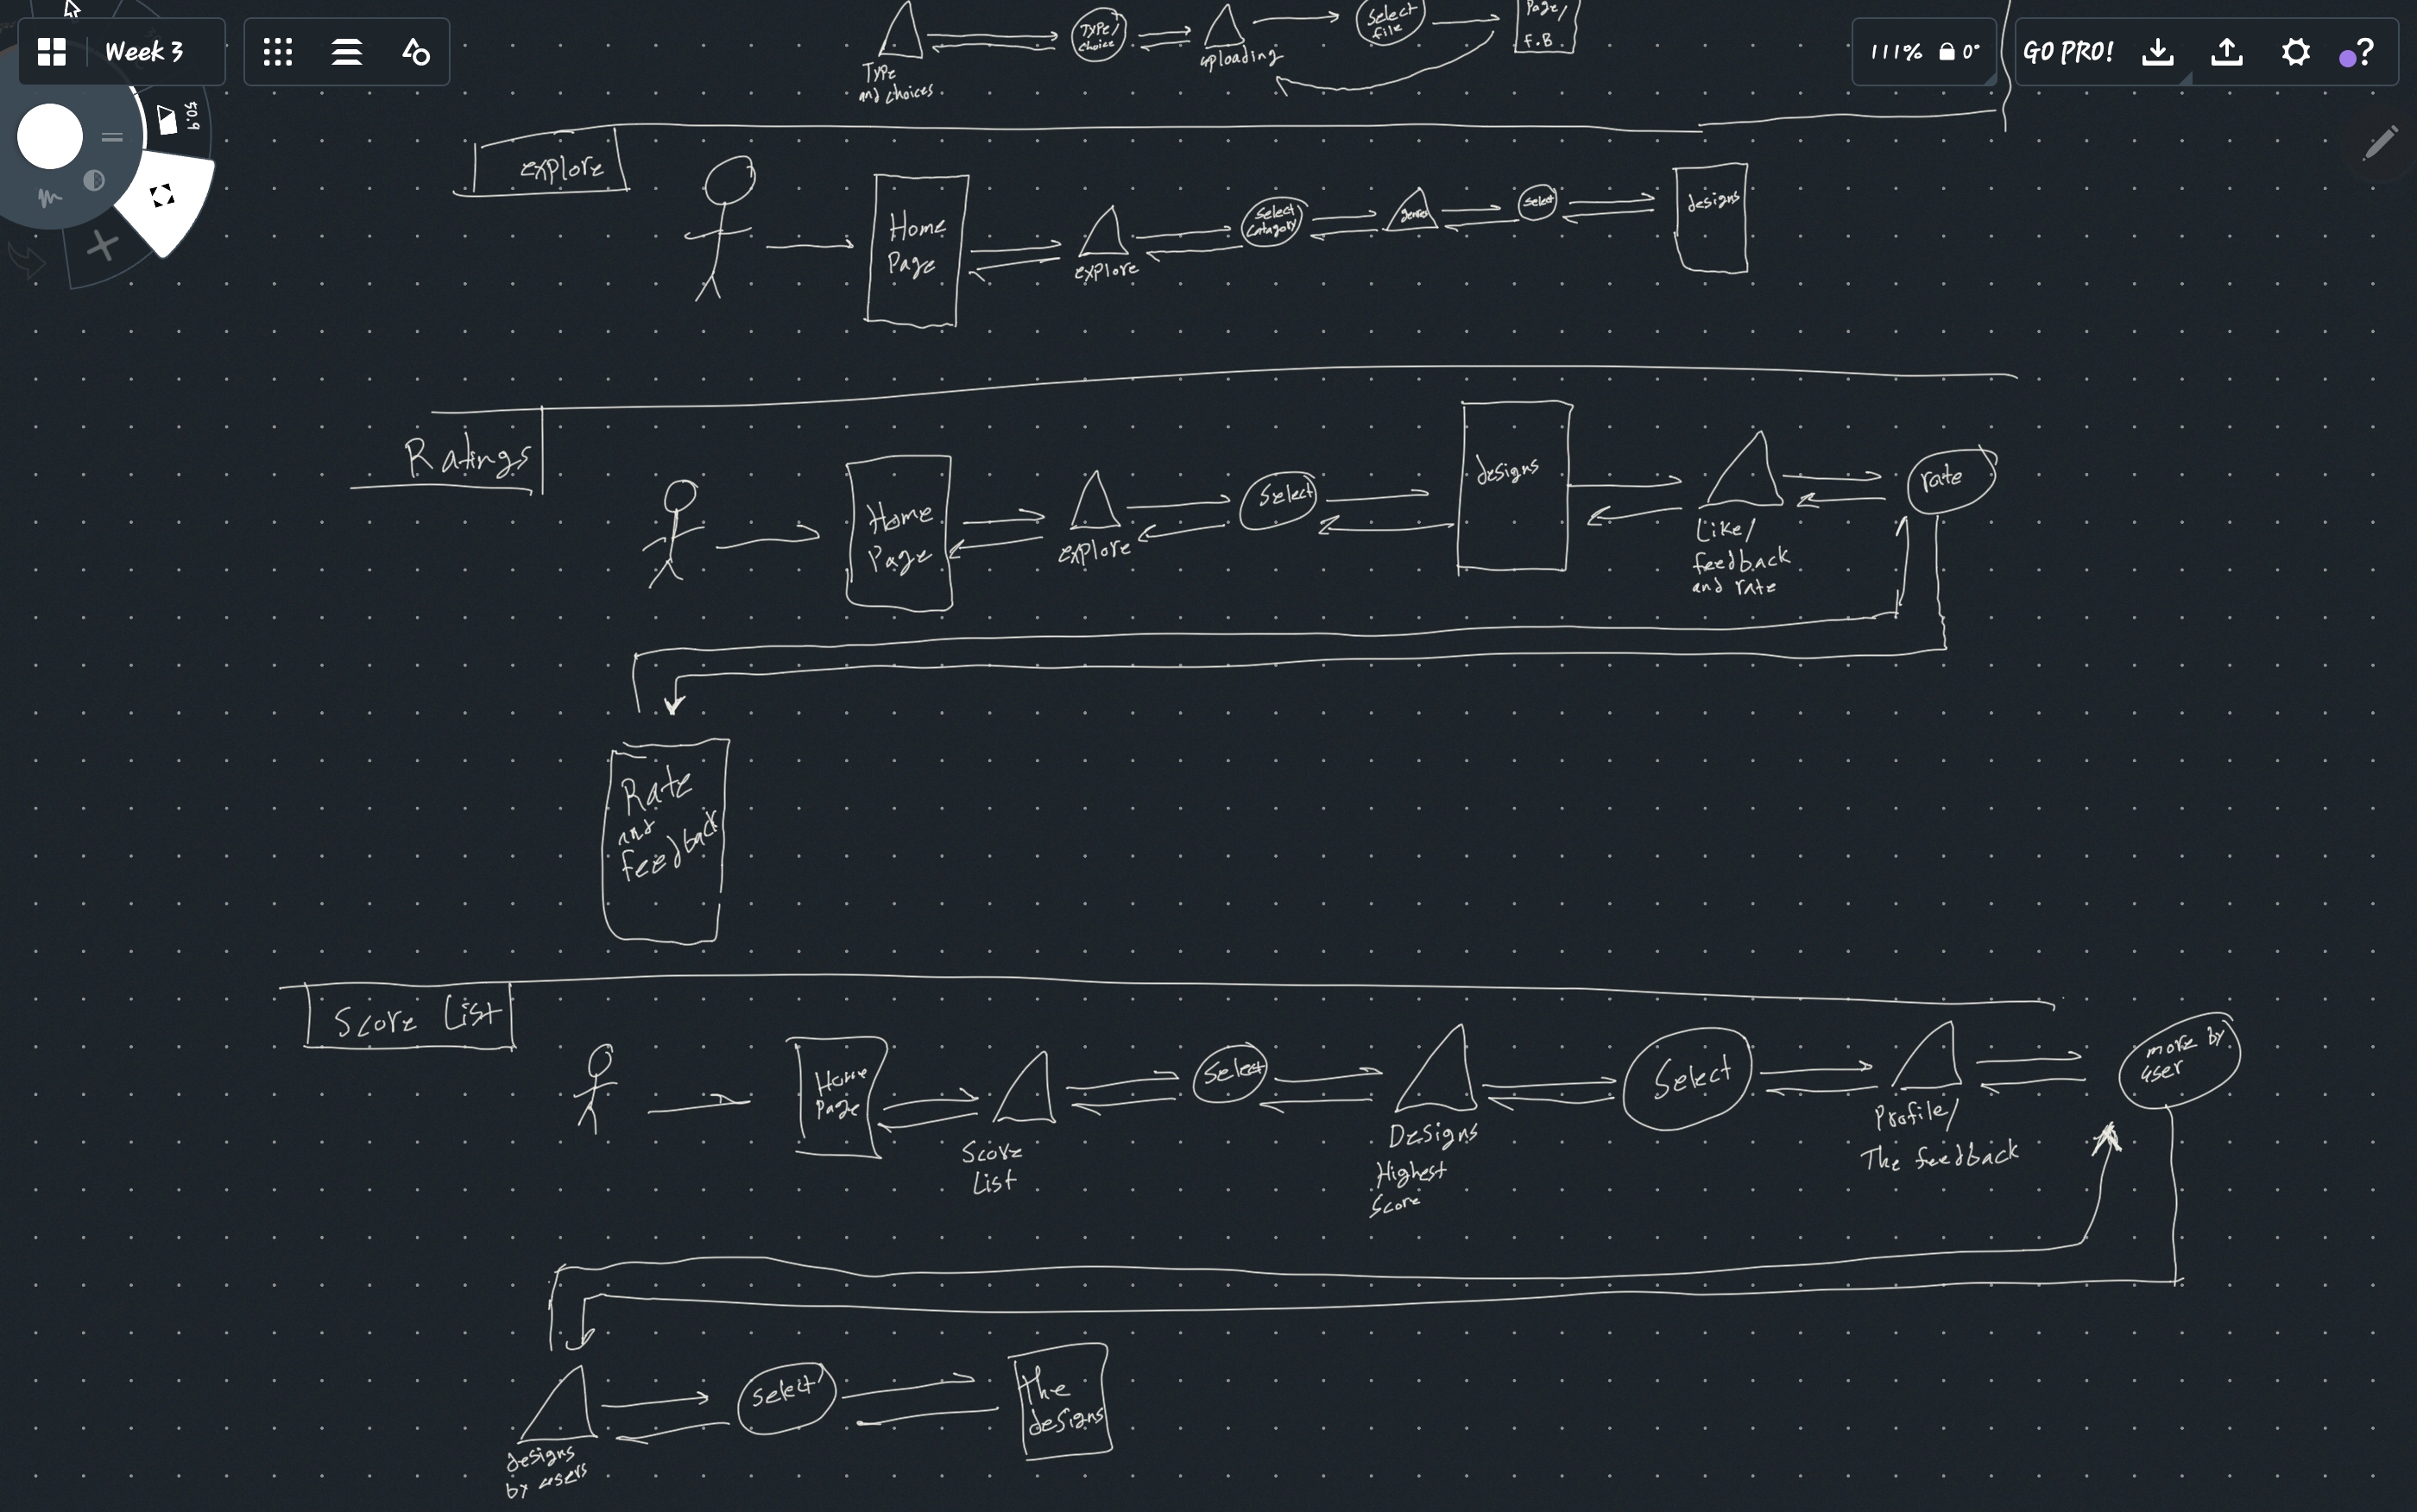 Week 3
50.9
111%
0°
GO PRO!
?
Type
and choices
Type/
choice
uploading
Select
file
Page/
F.B
explore
Home
Page
explore
Select
Catagory
genres
Select
designs
Ratings
Home
Page
explore
Select
designs
Like/
feedback
and rate
rate
Rate
and
feedback
Score List
Home
Page
Score
List
Select
Designs
Highest
Score
Select
Profile/
The feedback
more by
user
designs
by users
Select
The
designs